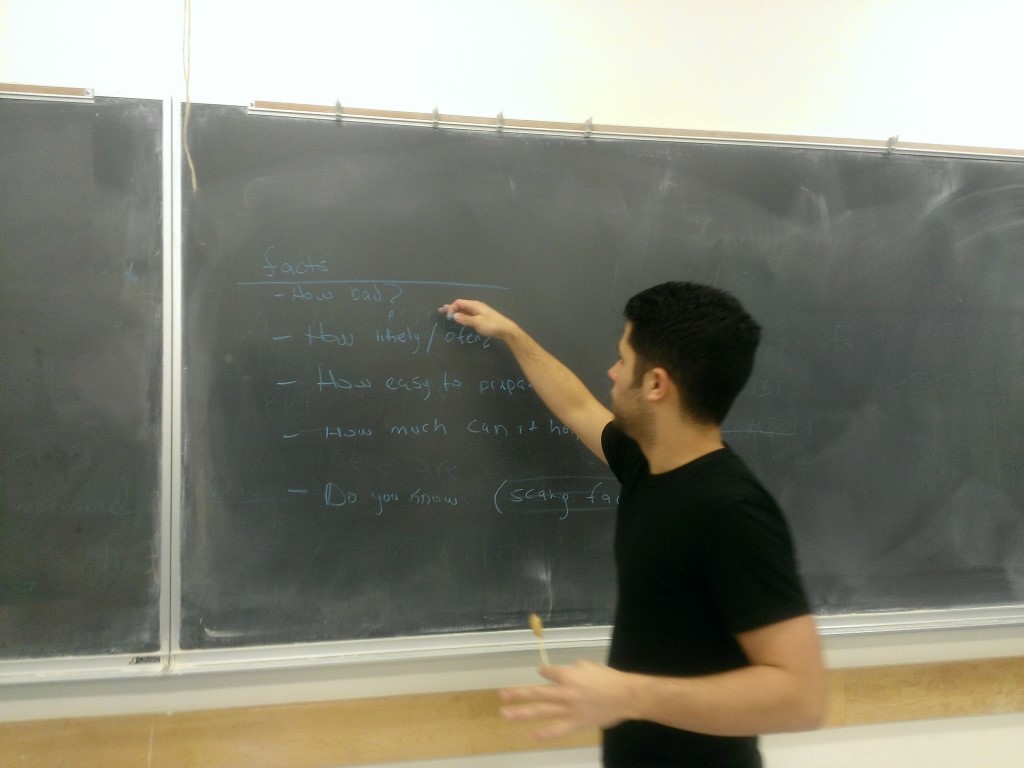 facts
- How bad?
- How likely / often?
- How easy to prepa
- How much can it
- Do you know (scary fac